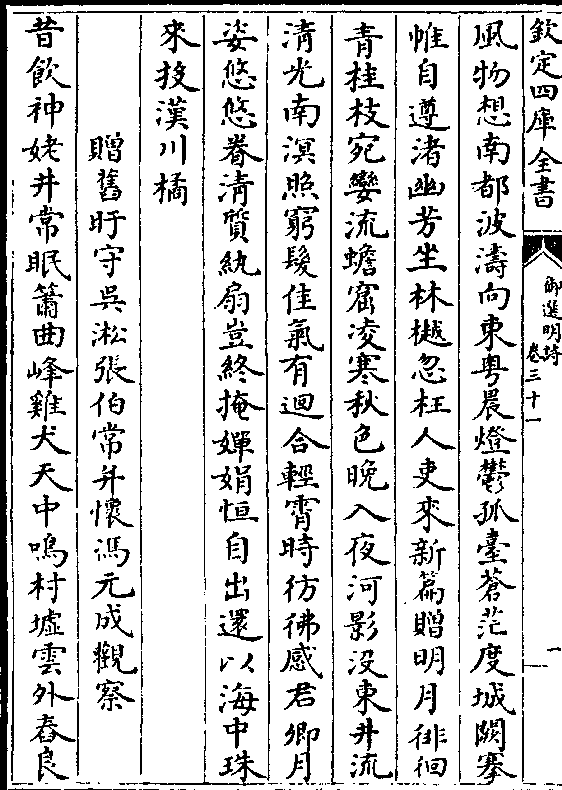 欽定四庫全書
御選明詩
卷三十一
一
風物想南都波濤向東粤晨燈鬱孤臺蒼茫度城闕搴
帷自遵渚幽芳坐林樾忽枉人吏來新篇贈明月徘徊
青桂枝宛孌流蟾窟凌寒秋色晚入夜河影没東井流
清光南溟照窮髮佳氣有迴合輕霄時彷彿感君卿月
姿悠悠眷清質紈扇豈終掩嬋娟恒自出還以海中珠
來投漢川橘
贈舊盱守吳淞張伯常并懷馮元成觀察
昔飲神姥井常眠簫曲峰雞犬天中鳴村墟雲外舂良